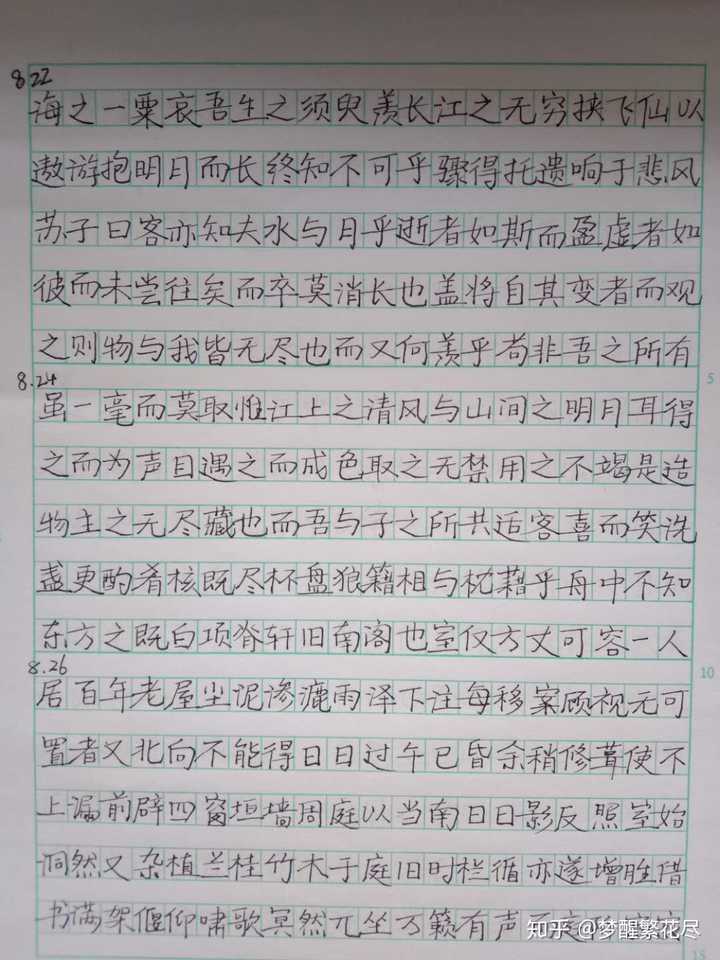 8.22
海之一粟哀吾生之须臾羡长江之无穷挟飞仙以
遨游抱明月而长终知不可乎骤得托遗响于悲风
苏子曰客亦知夫水与月乎逝者如斯而盈虚者如
彼而未尝往矣而卒莫消长也盖将自其变者而观
之则物与我皆无尽也而又何羡乎苟非吾之所有
5
8.24
虽一毫而莫取惟江上之清风与山间之明月耳得
之而为声目遇之而成色取之无禁用之不竭是造
物主之无尽藏也而吾与子之所共适客喜而笑洗
盏更酌肴核既尽杯盘狼籍相与枕藉乎舟中不知
东方之既白项脊轩旧南阁也室仅方丈可容一人
10
8.26
居百年老屋尘泥渗漉雨泽下注每移案顾视无可
置者又北向不能得日日过午已昏余稍修葺使不
上漏前辟四窗垣墙周庭以当南日日影反照室始
洞然又杂植兰桂竹木于庭旧时栏循亦遂增胜借
书满架偃仰啸歌冥然兀坐万籁有声而庭
15
知乎 @梦醒繁花尽